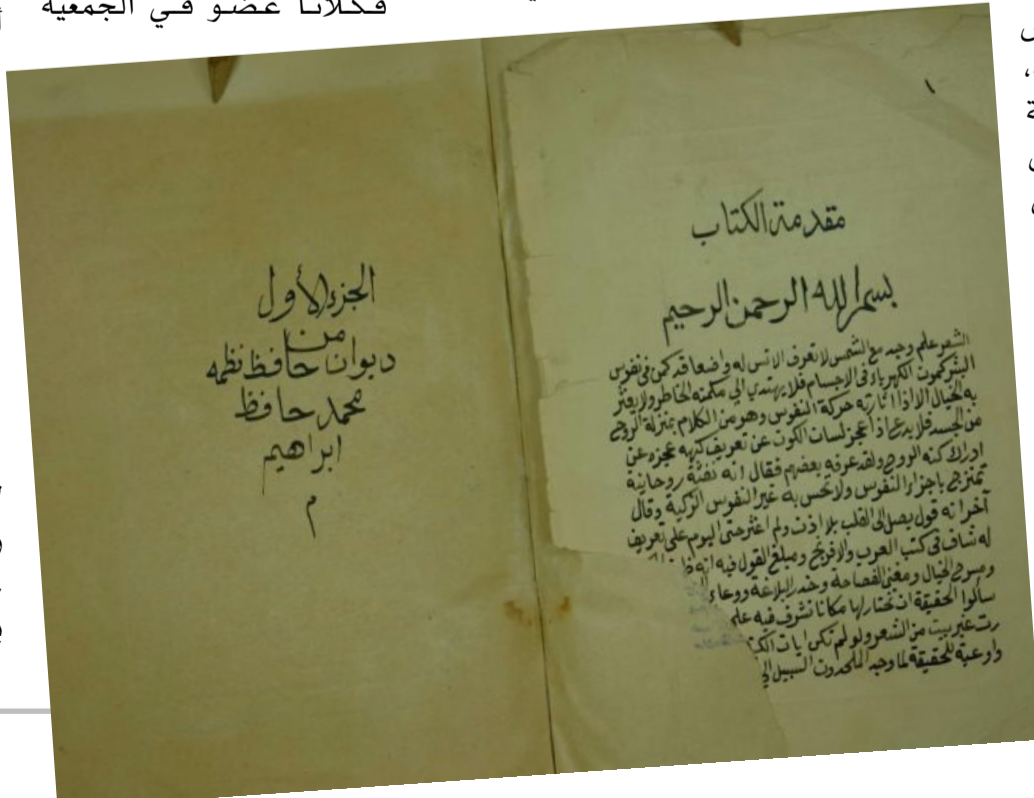 فكلانا عضو في الجمعية
١
مقدمة الكتاب
بسم الله الرحمن الرحيم
الشعر علم وجد مع الشمس لا تعرف الانس له واضعا قد كمن في نفوس
البشر كمون الكهرباء في الاجسام فلا يهتدي الي مكمنه الخاطر ولا يعثر
به الخيال الا اذا اثارته حركة النفوس وهو من الكلام بمنزلة الروح
من الجسد فلا بدع اذا عجز لسات الكوت عن تعريف كنهه عجزه عن
ادراك كنه الروح ولقد عرفه بعضهم فقال انه نفثة روحانية
تمتزج باجزاء النفوس ولا تحس به غير النفوس الزكية وقال
آخر انه قول يصل الى القلب بلا اذت ولم اعثر حتى اليوم على تعريف
له شاف في كتب العرب والافرنج ومبلغ القول فيه انه
ومسرح الخيال ومغنى الفصاحة وخدر البلاغة ووعاء
سألوا الحقيقة ان تختار لها مكانا تشرف فيه علي
رت غير بيت من الشعر ولو لم تكن ايات
واوعية للحقيقة لما وجد الملحدون السبيل الي
الجزء الأول
من
ديوان حافظ نظمه
محمد حافظ
ابراهيم
م